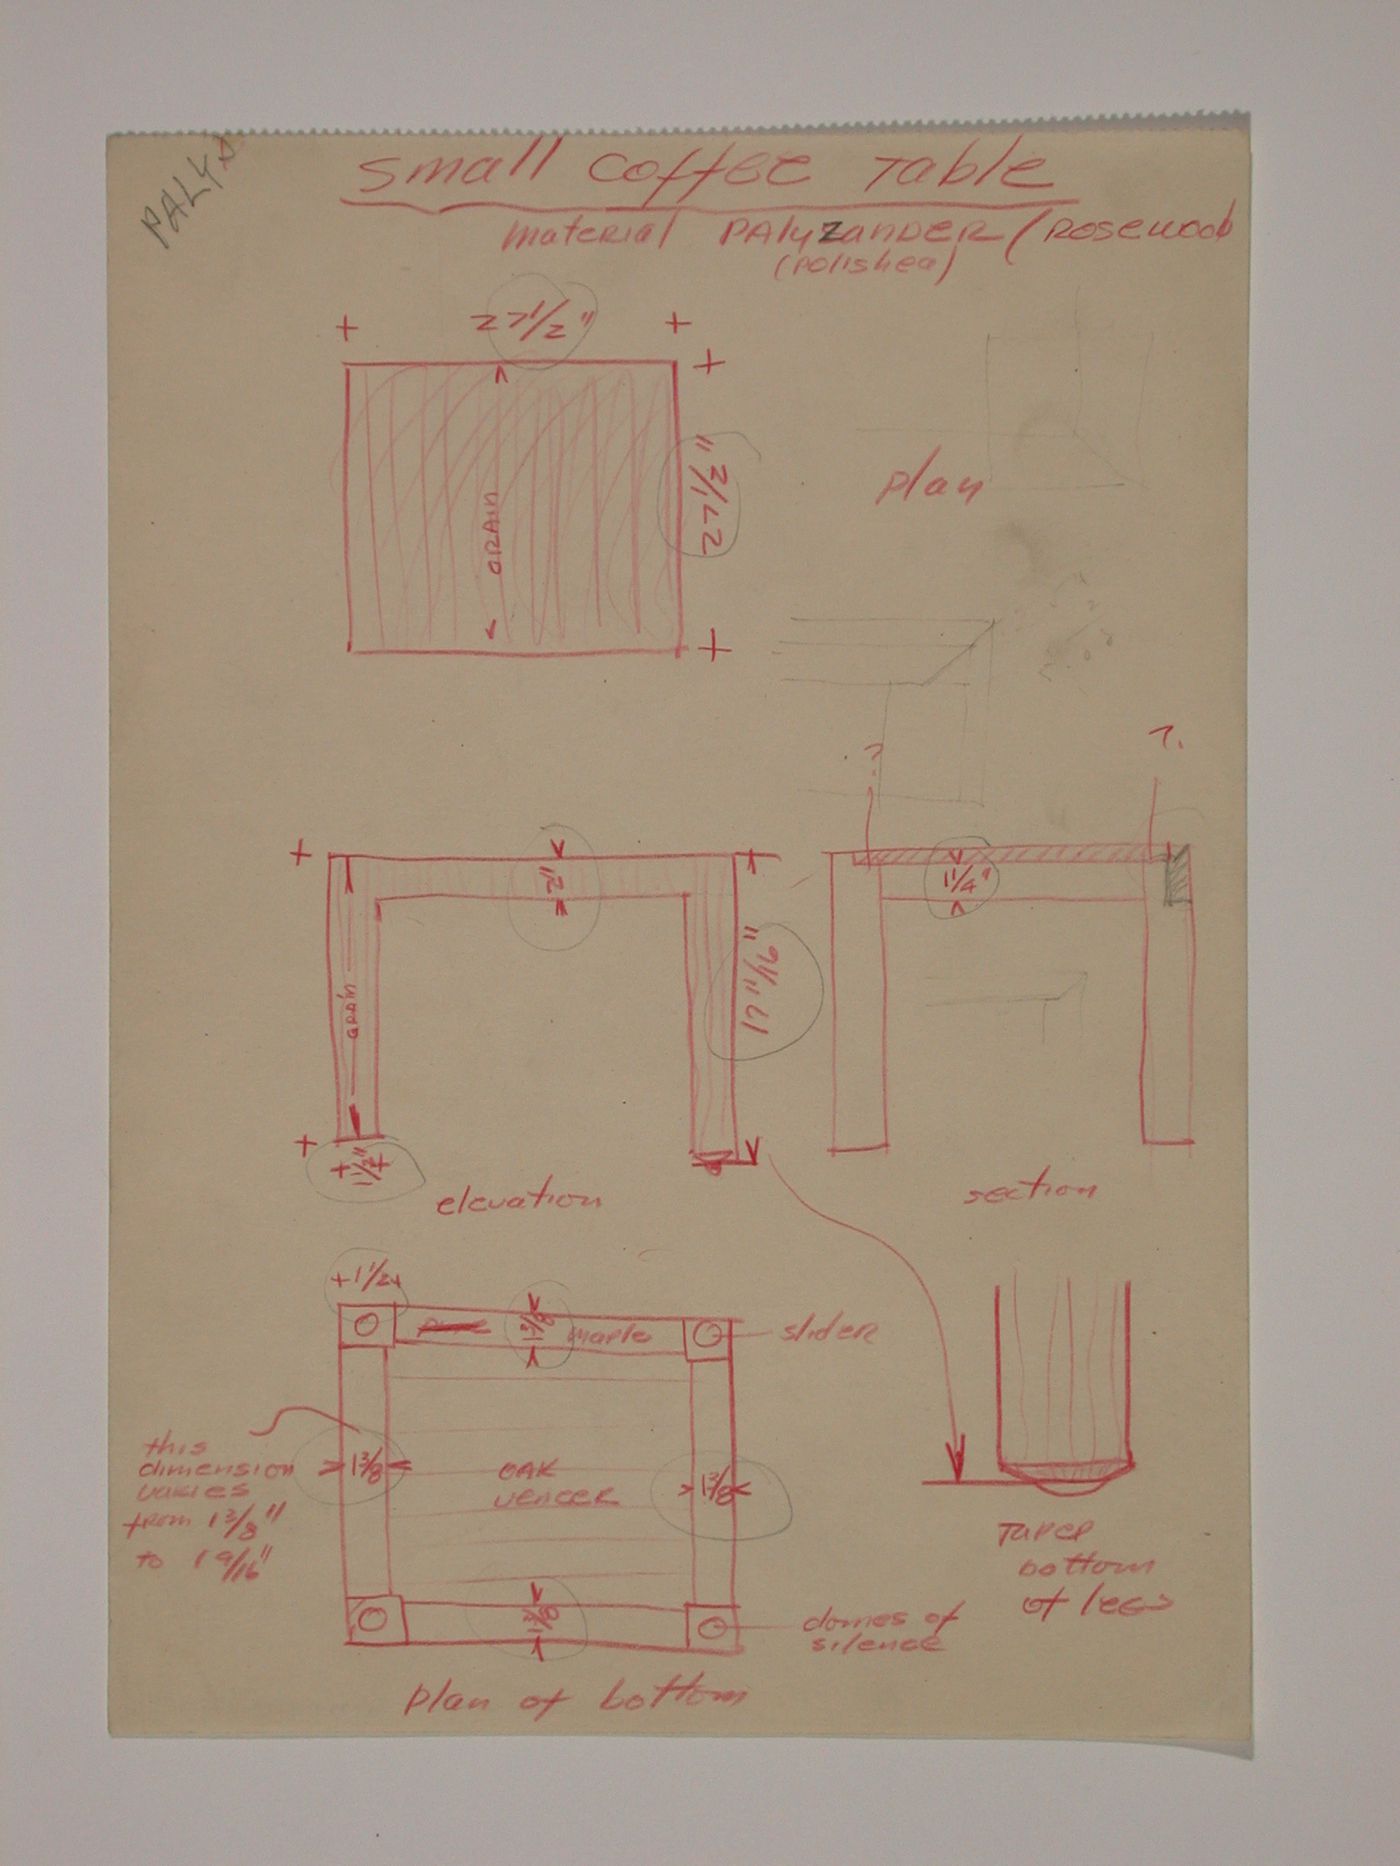 PALYS
small coffee Table
material PALYZANDER / ROSEWOOD
(polished)
27 1/2"
27 1/2"
GRAIN
plan
?
?.
2"
1 1/4"
GRAIN
17 11/16"
1 1/2"
elevation
section
+1 1/2+
1 3/8
maple
slider
this
dimension
varies
from 1 3/8"
to 1 9/16"
1 3/8
OAK
VENEER
1 3/8
1 3/8
Taper
bottom
of legs
domes of
silence
plan of bottom